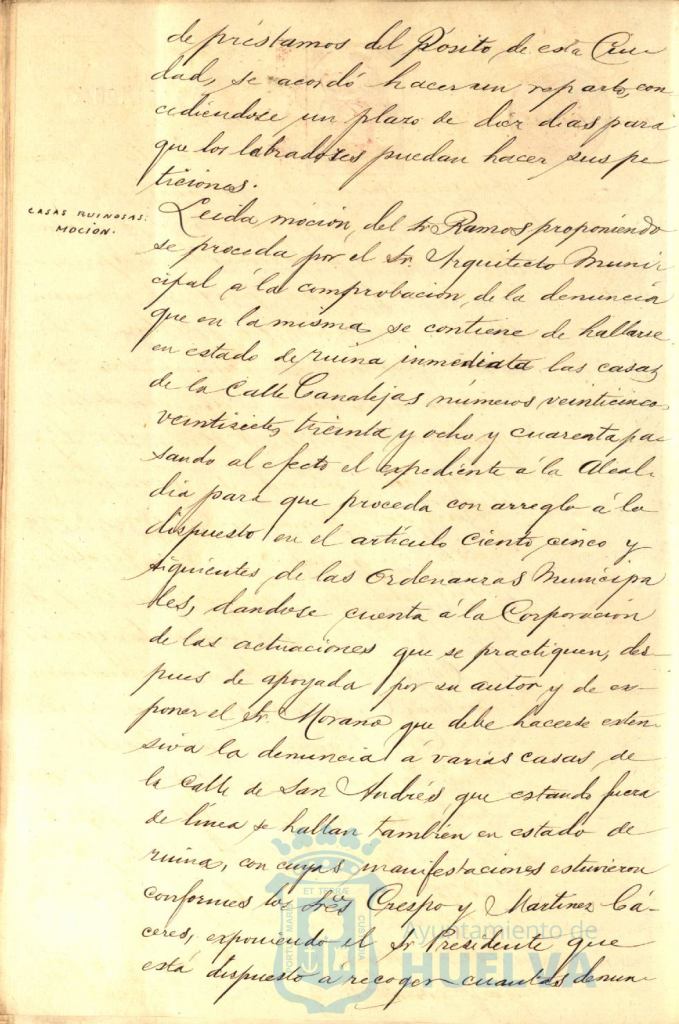 de préstamos del Pósito de esta Ciu-
dad, se acordó hacer un reparto, con
cediéndose un plazo de diez dias para
que los labradores puedan hacer sus pe
ticiones.
CASAS RUINOSAS.
MOCIÓN.
Leida moción, del Sr Ramos proponiendo
se proceda por el Sr. Arquitecto Muni-
cipal á la comprobación, de la denuncia
que en la misma se contiene de hallarse
en estado de ruina inmediata las casas
de la Calle Canalejas números veinticinco,
veintisiete, treinta y ocho y cuarenta pa
sando al efecto el expediente á la Alcal-
dia para que proceda con arreglo á lo
dispuesto en el artículo ciento cinco y
siguientes de las Ordenanzas Municipa
les, dandose cuenta á la Corporación
de las actuaciones que se practiquen, des-
pues de apoyada por su autor y de ex-
poner el Sr. Morano que debe hacerse exten-
siva la denuncia á varias casas de
la Calle de San Andrés, que estando fuera
de línea se hallan tambien en estado de
ruina, con cuyas manifestaciones estuvieron
conformes los Sres Crespo y Martinez Cá-
ceres, exponiendo el Sr Presidente que
está dispuesto á recoger cuantas denun-
PORTUS MARIS ET TERRÆ CUSTODIA
Ayuntamiento de
HUELVA